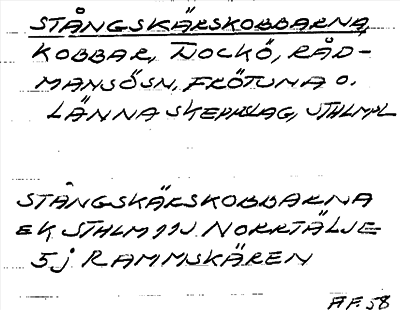 STÅNGSKÄRSKOBBARNA,
KOBBAR, TJOCKÖ, RÅD-
MANSÖ SN, FRÖTUNA O.
LÄNNA SKEPPSLAG, STHLMSL
STÅNGSKÄRSKOBBARNA
EK STHLM 11J NORRTÄLJE
5j RAMMSKÄREN
AF. 58